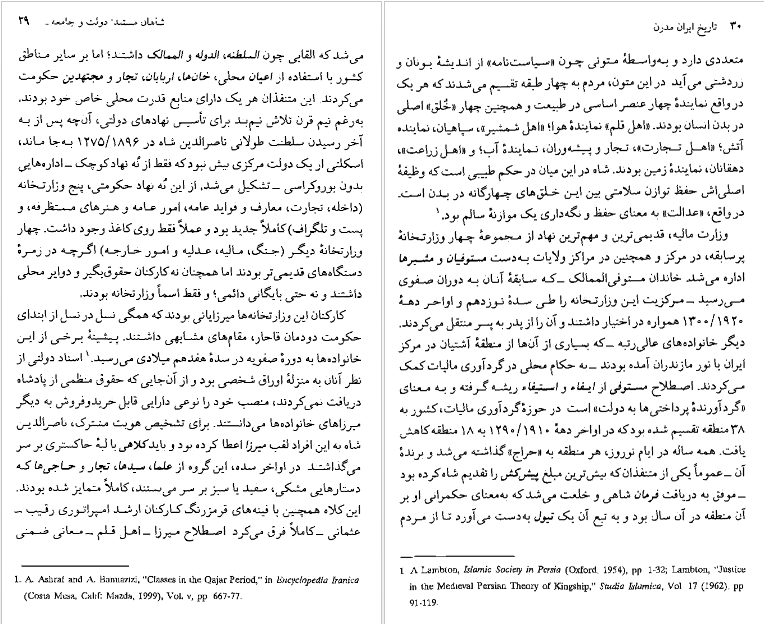 شاهان مستبد: دولت و جامعه ـ ۲۹
می‌شد که القابی چون السلطنه، الدوله و الممالک داشتند؛ اما بر سایر مناطق
کشور با استفاده از اعیان محلی، خان‌ها، اربابان، تجار و مجتهدین حکومت
می‌کردند. این متنفذان هر یک دارای منابع قدرت محلی خاص خود بودند.
به‌رغم نیم قرن تلاش نیم‌بند برای تأسیس نهادهای دولتی، آن‌چه پس از به
آخر رسیدن سلطنت طولانی ناصرالدین شاه در ۱۲۷۵/۱۸۹۶ به‌جا ماند،
اسکلتی از یک دولت مرکزی بیش نبود که فقط از نُه نهاد کوچک ـ اداره‌هایی
بدون بوروکراسی ـ تشکیل می‌شد. از این نُه نهاد حکومتی، پنج وزارتخانه
(داخله، تجارت، معارف و فواید عامه، امور عامه و هنرهای مستظرفه، و
پست و تلگراف) کاملاً جدید بود و عملاً فقط روی کاغذ وجود داشت. چهار
وزارتخانه دیگر (جنگ، مالیه، عدلیه و امور خارجه) اگرچه در زمرهٔ
دستگاه‌های قدیمی‌تر بودند اما همچنان نه کارکنان حقوق‌بگیر و دوایر محلی
داشتند و نه حتی بایگانی دائمی؛ و فقط اسماً وزارتخانه بودند.
کارکنان این وزارتخانه‌ها میرزایانی بودند که همگی نسل در نسل از ابتدای
حکومت دودمان قاجار، مقام‌های مشابهی داشتند. پیشینهٔ برخی از این
خانواده‌ها به دورهٔ صفویه در سدهٔ هفدهم میلادی می‌رسید.۱ اسناد دولتی از
نظر آنان به منزلهٔ اوراق شخصی بود و از آن‌جایی که حقوق منظمی از پادشاه
دریافت نمی‌کردند، منصب خود را نوعی دارایی قابل خریدوفروش به دیگر
میرزاهای خانواده‌ها می‌دانستند. برای تشخیص هویت مشترک، ناصرالدین
شاه به این افراد لقب میرزا اعطا کرده بود و باید کلاهی با لبهٔ خاکستری بر سر
می‌گذاشتند. در اواخر سده، این گروه از علما، سیدها، تجار و حاجی‌ها که
دستارهایی مشکی، سفید یا سبز بر سر می‌بستند، کاملاً متمایز شده بودند.
این کلاه همچنین با فینه‌های قرمزرنگ کارکنان ارشد امپراتوری رقیب ـ
عثمانی ـ کاملاً فرق می‌کرد. اصطلاح میرزا ـ اهل قلم ـ معانی ضمنی
1. A. Ashraf and A. Banuazizi, "Classes in the Qajar Period," in Encyclopedia Iranica
(Costa Mesa, Calif: Mazda, 1999), Vol. v, pp 667-77.
۳۰ تاریخ ایران مدرن
متعددی دارد و به‌واسطهٔ متونی چون «سیاست‌نامه» از اندیشهٔ یونان و
زردشتی می‌آید. در این متون، مردم به چهار طبقه تقسیم می‌شدند که هر یک
در واقع نمایندهٔ چهار عنصر اساسی در طبیعت و همچنین چهار «خُلق» اصلی
در بدن انسان بودند. «اهل قلم» نمایندهٔ هوا؛ «اهل شمشیر»، سپاهیان، نماینده
آتش؛ «اهل تجارت»، تجار و پیشه‌وران، نمایندهٔ آب؛ و «اهل زراعت»،
دهقانان، نمایندهٔ زمین بودند. شاه در این میان در حکم طبیبی است که وظیفهٔ
اصلی‌اش حفظ توازن سلامتی بین این خلق‌های چهارگانه در بدن است.
در واقع، «عدالت» به معنای حفظ و نگه‌داری یک موازنهٔ سالم بود.۱
وزارت مالیه، قدیمی‌ترین و مهم‌ترین نهاد از مجموعهٔ چهار وزارتخانهٔ
پرسابقه، در مرکز و همچنین در مراکز ولایات به‌دست مستوفیان و مشیرها
اداره می‌شد. خاندان مستوفی‌الممالک ـ که سابقهٔ آنان به دوران صفوی
می‌رسید ـ مرکزیت این وزارتخانه را طی سدهٔ نوزدهم و اواخر دههٔ
۱۳۰۰/۱۹۲۰ همواره در اختیار داشتند و آن را از پدر به پسر منتقل می‌کردند.
دیگر خانواده‌های عالی‌رتبه ـ که بسیاری از آن‌ها از منطقهٔ آشتیان در مرکز
ایران یا نور مازندران آمده بودند ـ به حکام محلی در گردآوری مالیات کمک
می‌کردند. اصطلاح مستوفی از ایفاء و استیفاء ریشه گرفته و به معنای
«گردآورندهٔ پرداختی‌ها به دولت» است. در حوزهٔ گردآوری مالیات، کشور به
۳۸ منطقه تقسیم شده بود که در اواخر دههٔ ۱۲۹۰/۱۹۱۰ به ۱۸ منطقه کاهش
یافت. همه ساله در ایام نوروز، هر منطقه به «حراج» گذاشته می‌شد و برندهٔ
آن ـ عموماً یکی از متنفذان که بیش‌ترین مبلغ پیش‌کش را تقدیم شاه کرده بود
ـ موفق به دریافت فرمان شاهی و خلعت می‌شد که به‌معنای حکمرانی او بر
آن منطقه در آن سال بود و به تبع آن یک تیول به‌دست می‌آورد تا از مردم
1 A Lambton, Islamic Society in Persia (Oxford, 1954), pp 1-32; Lambton, "Justice
in the Medieval Persian Theory of Kingship," Studia Islamica, Vol 17 (1962), pp
91-119.